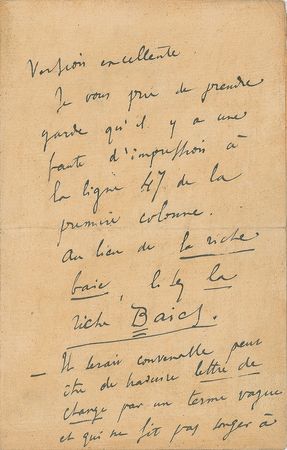 Version excellente.
Je vous prie de prendre
garde qu'il y a une
faute d'impression à
la ligne 47 de la
première colonne.
Au lieu de la riche
baie, lisez la
riche Baies.
— Il serait convenable peut
être de traduire lettre de
change par un terme vague
et qui ne fit pas songer à